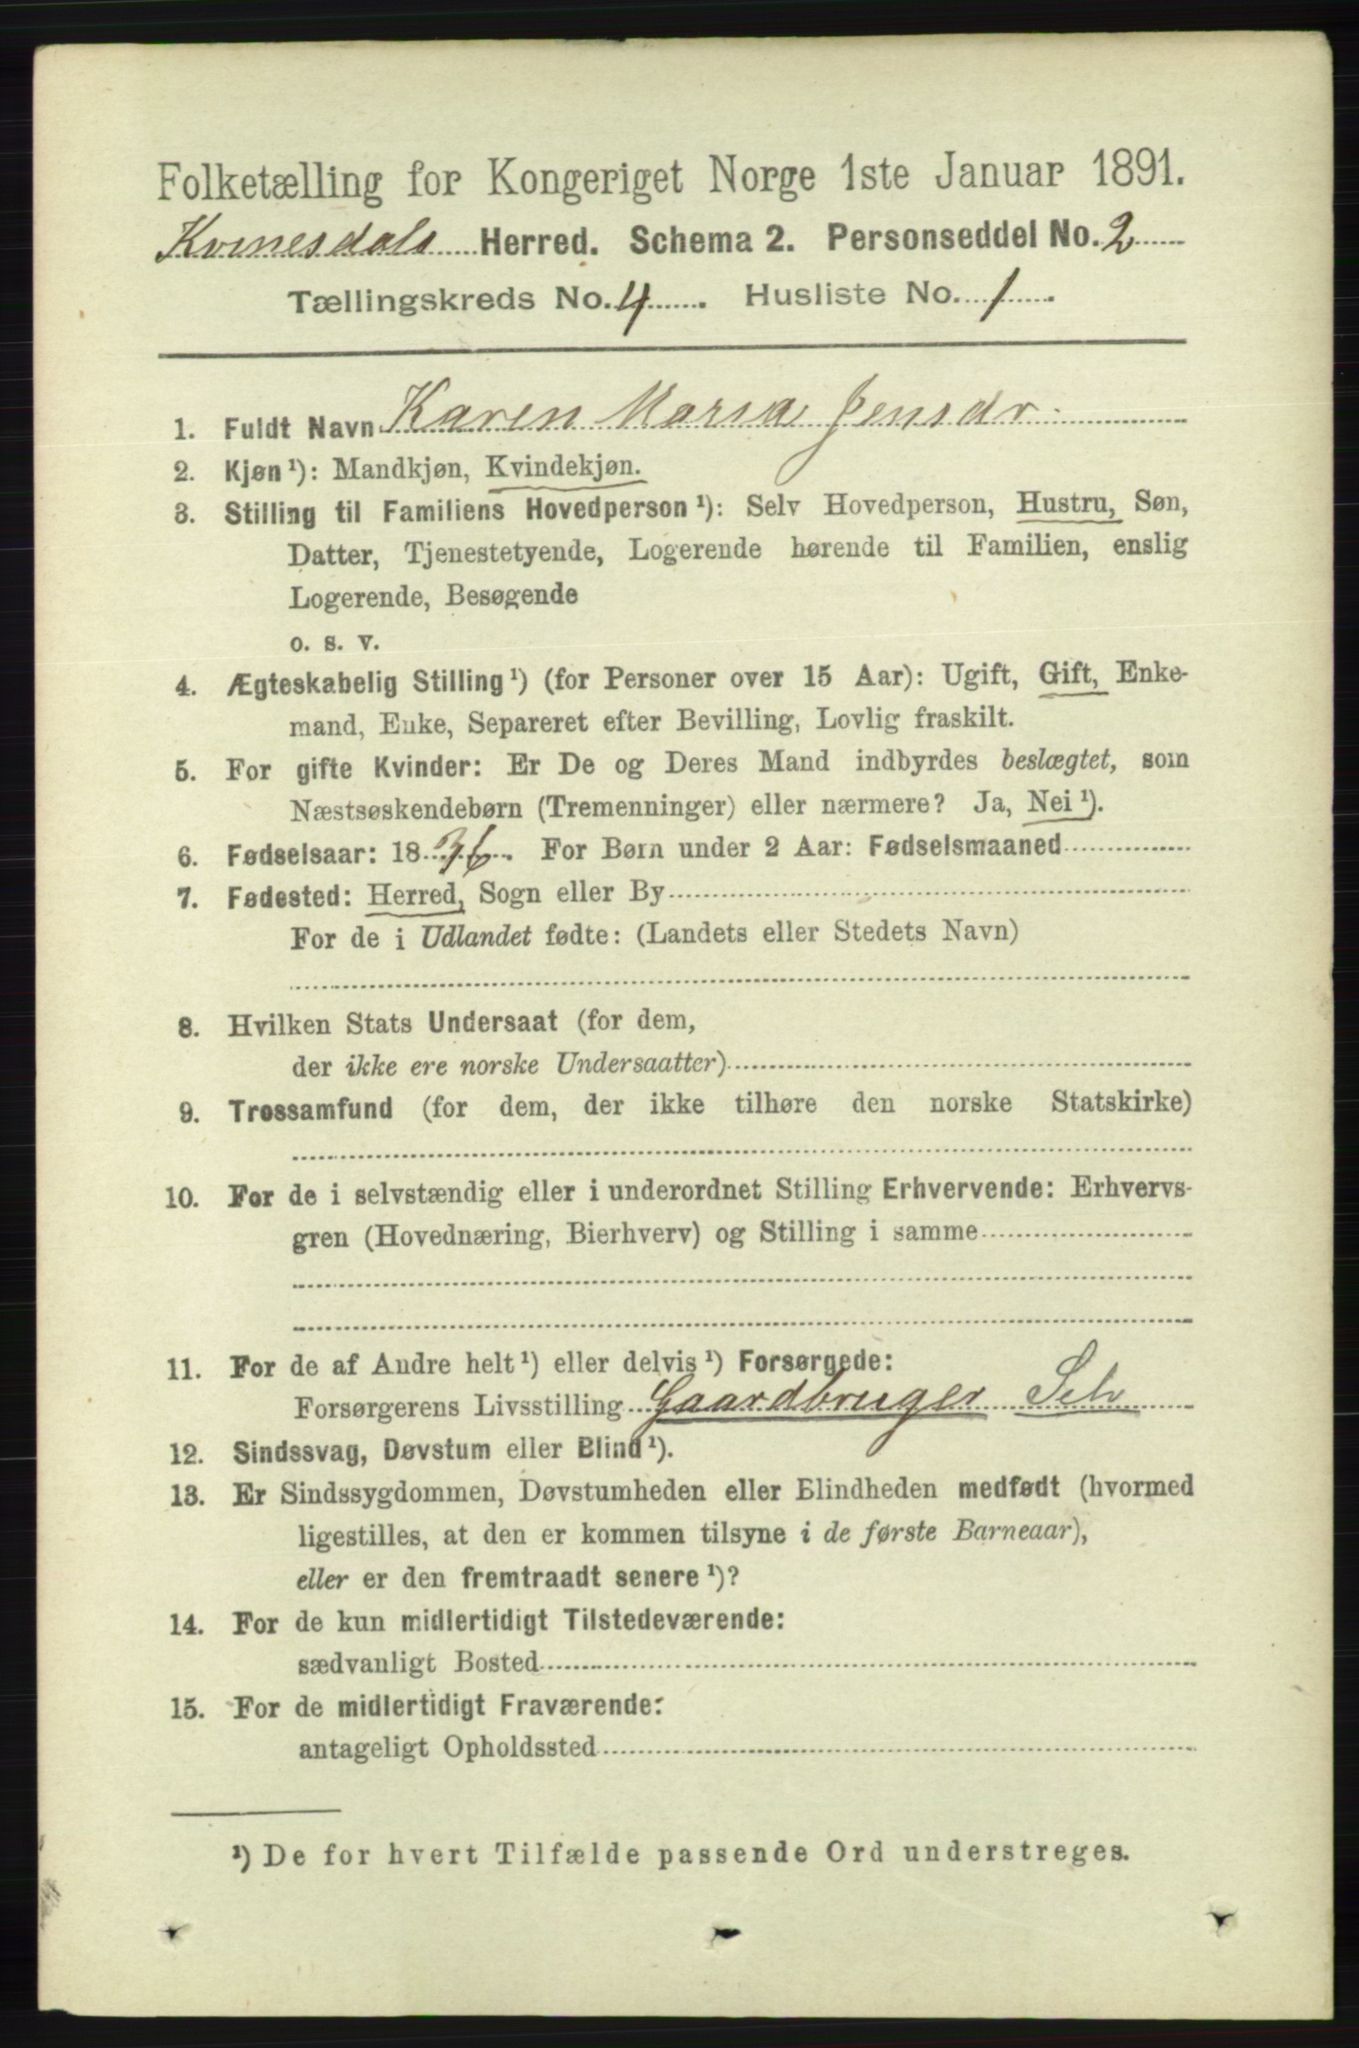 Folketælling for Kongeriget Norge 1ste Januar 1891.
Kvinesdals Herred. Schema 2. Personseddel No. 2
Tællingskreds No. 4. Husliste No. 1.
1. Fuldt Navn Karen Maria Jensdr.
2. Kjøn ¹): Mandkjøn, Kvindekjøn.
3. Stilling til Familiens Hovedperson ¹): Selv Hovedperson, Hustru, Søn,
Datter, Tjenestetyende, Logerende hørende til Familien, enslig
Logerende, Besøgende
o. s. v.
4. Ægteskabelig Stilling ¹) (for Personer over 15 Aar): Ugift, Gift, Enke-
mand, Enke, Separeret efter Bevilling, Lovlig fraskilt.
5. For gifte Kvinder: Er De og Deres Mand indbyrdes beslægtet, som
Næstsøskendebørn (Tremenninger) eller nærmere? Ja, Nei ¹).
6. Fødselsaar: 1836. For Børn under 2 Aar: Fødselsmaaned
7. Fødested: Herred, Sogn eller By
For de i Udlandet fødte: (Landets eller Stedets Navn)
8. Hvilken Stats Undersaat (for dem,
der ikke ere norske Undersaatter)
9. Trossamfund (for dem, der ikke tilhøre den norske Statskirke)
10. For de i selvstændig eller i underordnet Stilling Erhvervende: Erhvervs-
gren (Hovednæring, Bierhverv) og Stilling i samme
11. For de af Andre helt ¹) eller delvis ¹) Forsørgede:
Forsørgerens Livsstilling Gaardbruger Selv
12. Sindssvag, Døvstum eller Blind ¹).
13. Er Sindssygdommen, Døvstumheden eller Blindheden medfødt (hvormed
ligestilles, at den er kommen tilsyne i de første Barneaar),
eller er den fremtraadt senere ¹)?
14. For de kun midlertidigt Tilstedeværende:
sædvanligt Bosted
15. For de midlertidigt Fraværende:
antageligt Opholdssted
¹) De for hvert Tilfælde passende Ord understreges.